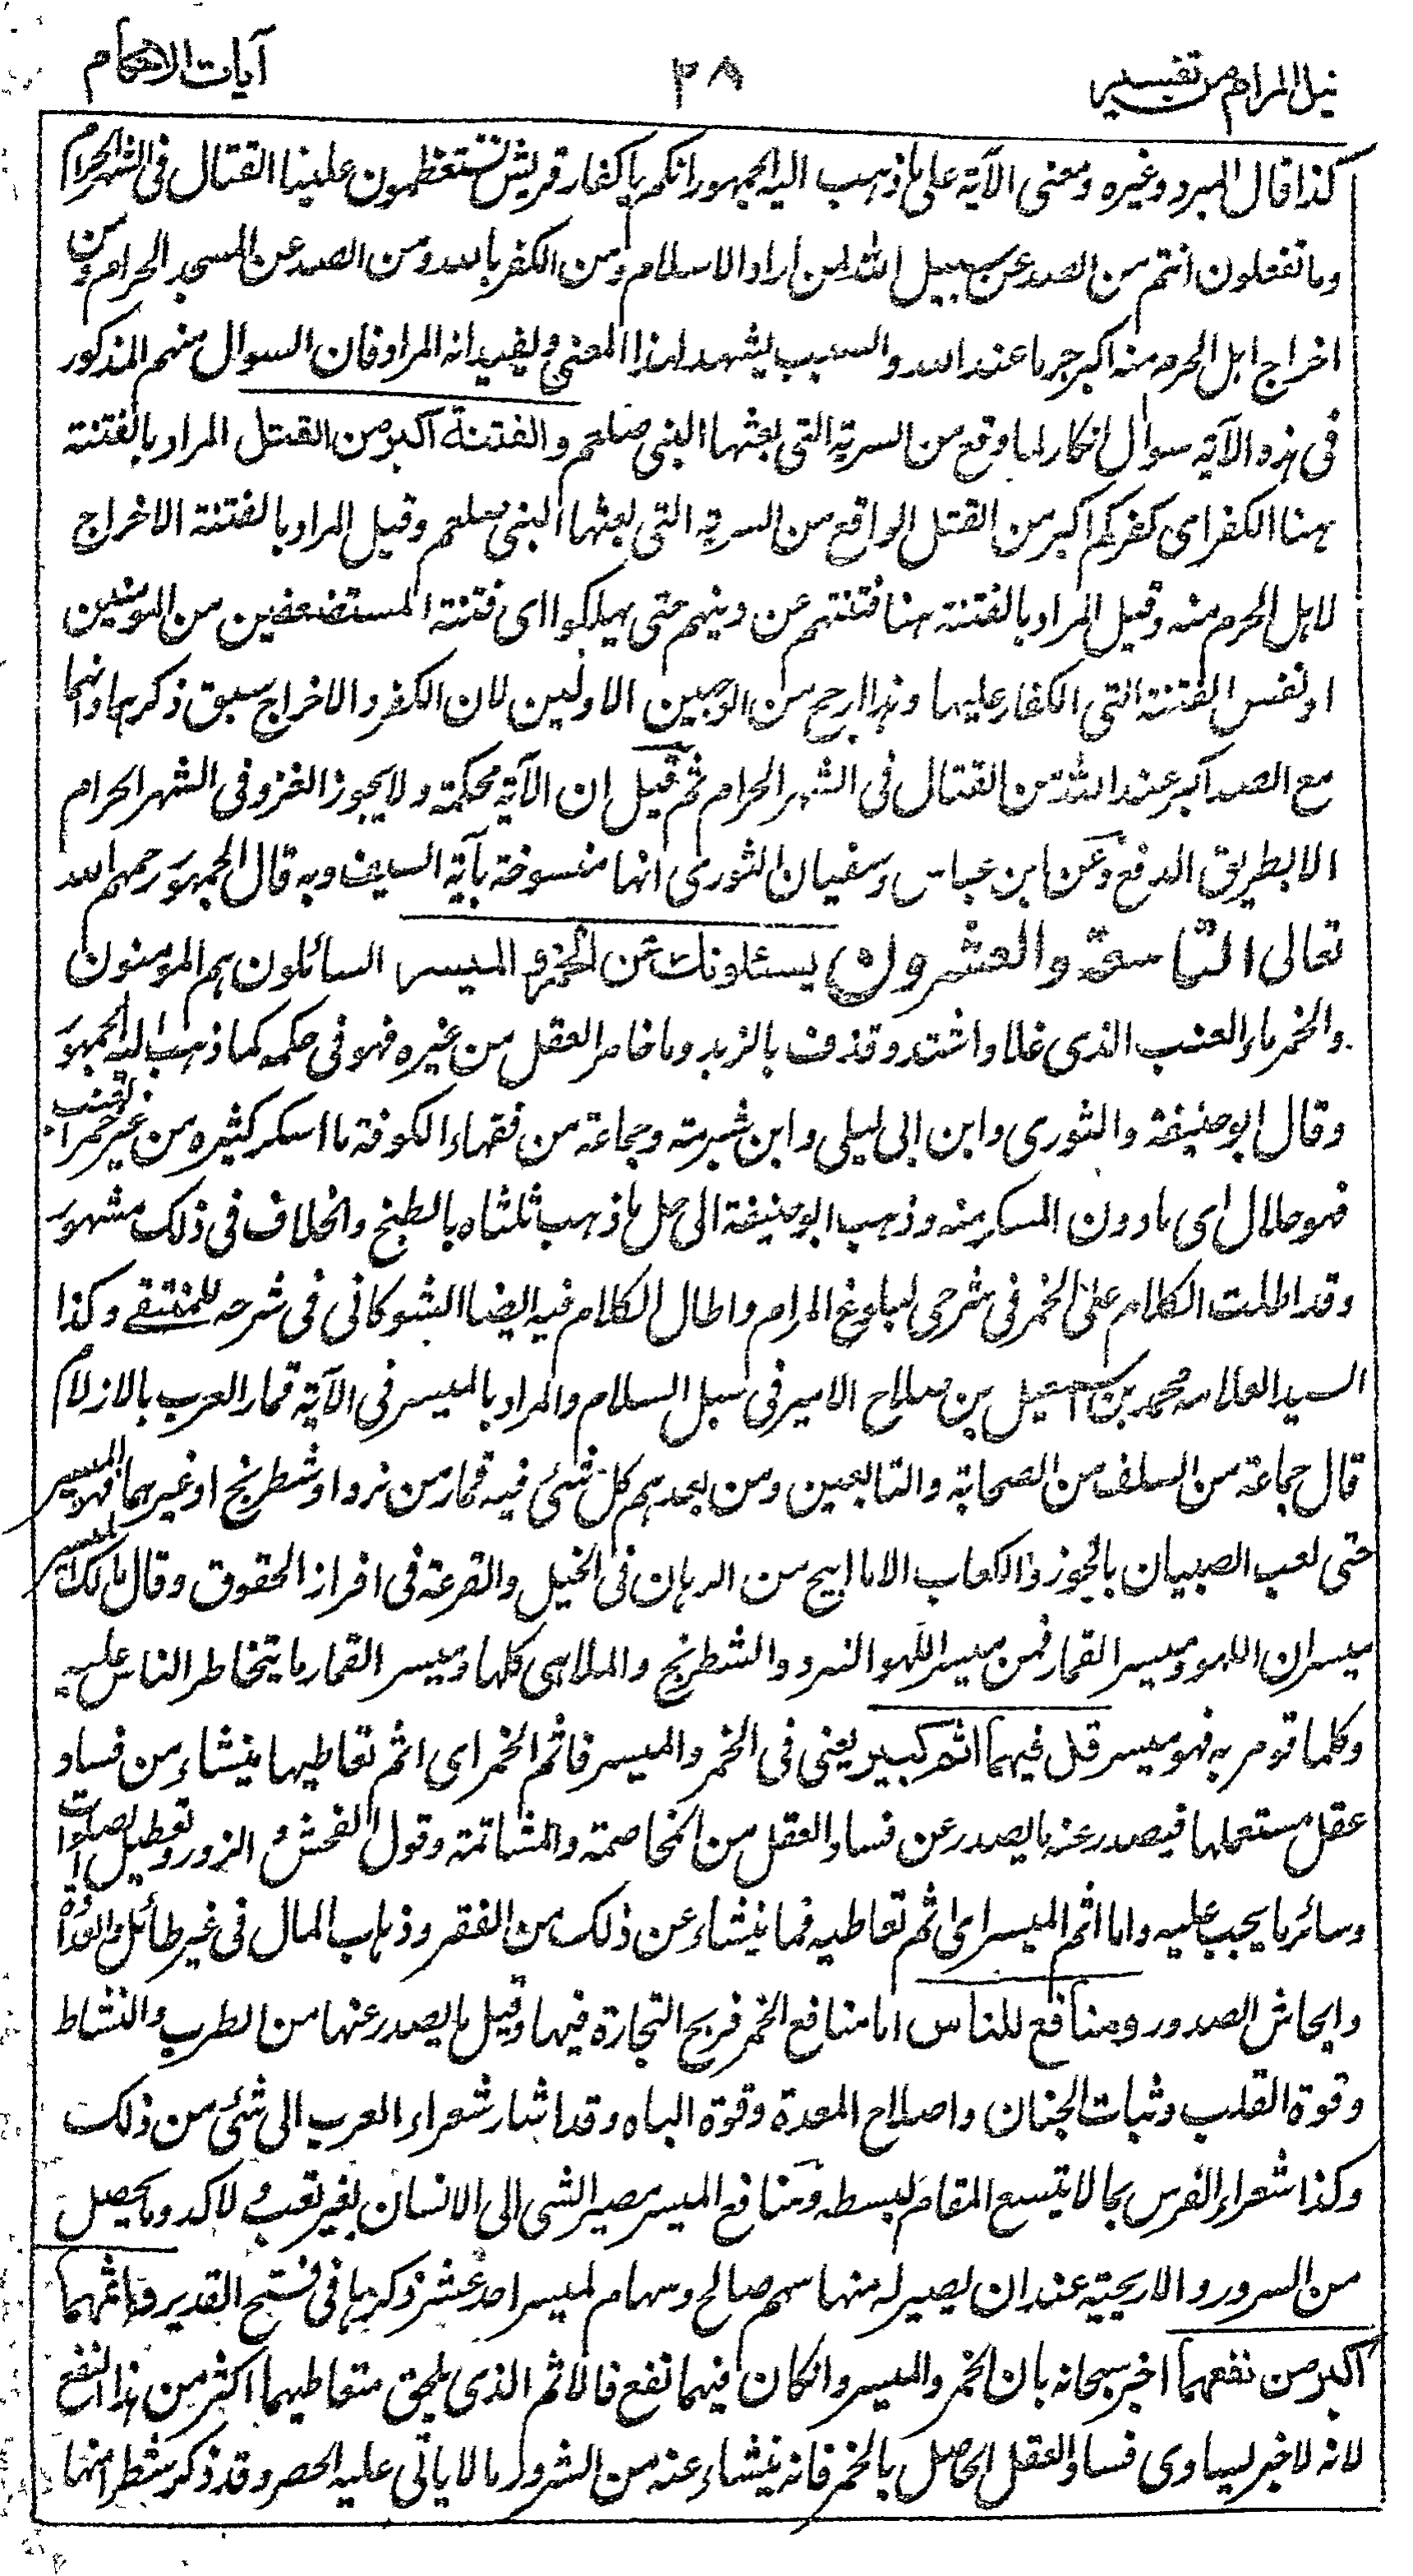 نيل المرام من تفسير
٣٨
آيات الاحكام
كذا قال المبرد وغيره ومعنى الآية على ما ذهب اليه الجمهور انكم يا كفار قريش تستعظمون علينا القتال فى الشهر الحرام
وما تفعلون انتم من الصد عن سبيل الله لمن اراد الاسلام ومن الكفر بالله ومن الصد عن المسجد الحرام ومن
اخراج اهل الحرم منه اكبر جرما عند الله والسبب يشهد لهذا المعنى ويفيد انه المراد فان السوال منهم المذكور
فى هذه الآية سوال انكار لما وقع من السرية التى بعثها النبى صلعم والفتنة اكبر من القتل المراد بالفتنة
هنا الكفر اى كفركم اكبر من القتل الواقع من السرية التى بعثها النبى صلعم وقيل المراد بالفتنة الاخراج
لاهل الحرم منه وقيل المراد بالفتنة هنا فتنتهم عن دينهم حتى يهلكوا اى فتنة المستضعفين من المومنين
او نفس الفتنة التى الكفار عليها وهذا ارجح من الوجهين الاولين لان الكفر والاخراج سبق ذكرهما وانهما
مع الصد اكبر عند الله من القتال فى الشهر الحرام ثم قيل ان الآية محكمة ولا يجوز الغزو فى الشهر الحرام
الا بطريق الدفع وعن ابن عباس وسفيان الثورى انها منسوخة بآية السيف وبه قال الجمهور رحمهم الله
تعالى التاسعة والعشرون يسئلونك عن الخمر والميسر السائلون هم المومنون
والخمر ماء العنب الذى غلا واشتد وقذف بالزبد وما خامر العقل من غيره فهو فى حكمه كما ذهب اليه الجمهور
وقال ابو حنيفة والثورى وابن ابى ليلى وابن شبرمة وجماعة من فقهاء الكوفة ما اسكر كثيره من غير خمر العنب
فهو حلال اى ما دون المسكر منه وذهب ابو حنيفة الى حل ما ذهب ثلثاه بالطبخ والخلاف فى ذلك مشهور
وقد اطلت الكلام على الخمر فى شرحى لبلوغ المرام واطال الكلام فيه ايضا الشوكانى فى شرحه للمنتقے وكذا
السيد العلامه محمد بن اسمعيل بن صلاح الامير فى سبل السلام والمراد بالميسر فى الآية قمار العرب بالازلام
قال جماعة من السلف من الصحابة والتابعين ومن بعدهم كل شئ فيه قمار من نرد او شطرنج او غيرهما فهو الميسر
حتى لعب الصبيان بالجوز والكعاب الا ما ابيح من الرهان فى الخيل والقرعة فى افراز الحقوق وقال مالك الميسر
ميسران اللهو وميسر القمار فمن ميسر اللهو النرد والشطرنج والملاهى كلها وميسر القمار ما يتخاطر الناس عليه
وكلما قومر به فهو ميسر قل فيهما اثم كبير يعنى فى الخمر والميسر فاثم الخمر اى اثم تعاطيها ينشاء من فساد
عقل مستعملها فيصدر عنه ما يصدر عن فساد العقل من المخاصمة والمشاتمة وقول الفحش و الزور وتعطيل الصلوات
وسائر ما يجب عليه واما اثم الميسر اى اثم تعاطيه فما ينشاء عن ذلك من الفقر وذهاب المال فى غير طائل والعداوة
وايحاش الصدور ومنافع للناس اما منافع الخمر فربح التجارة فيها وقيل ما يصدر عنها من الطرب والنشاط
وقوة القلب وثبات الجنان واصلاح المعدة وقوة الباه وقد اشار شعراء العرب الى شئ من ذلك
وكذا شعراء الفرس بما لا يتسع المقام لبسطه ومنافع الميسر مصير الشى الى الانسان بغير تعب و لا كد وما يحصل
من السرور والاريحية عند ان يصير له منها سهم صالح وسهام الميسر احد عشر ذكرها فى فتح القدير واثمهما
اكبر من نفعهما اخبر سبحانه بان الخمر والميسر وان كان فيهما نفع فالاثم الذى يلحق متعاطيهما اكثر من هذا النفع
لانه لا خير يساوى فساد العقل الحاصل بالخمر فانه ينشاء عنه من الشرور ما لا ياتى عليه الحصر وقد ذكر شطرا منها